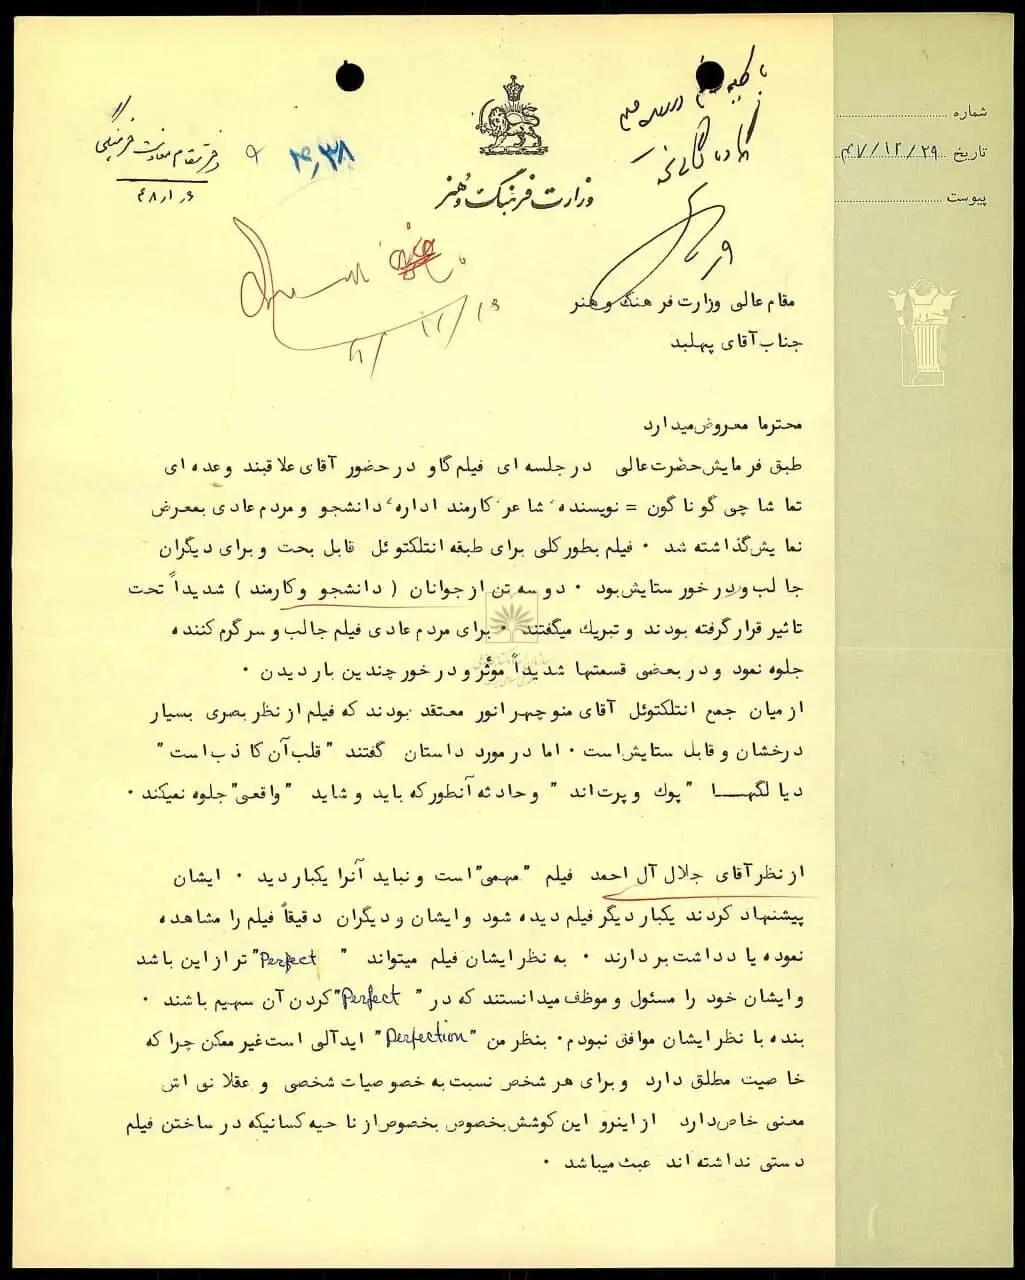 شماره
تاریخ ۴۷/۱۲/۲۹
پیوست
وزارت فرهنگ و هنر
دفتر مقام معاونت فرهنگی
۴۸
۴٫۳۸
مقام عالی وزارت فرهنگ و هنر
جناب آقای پهلبد
محترما معروض میدارد
طبق فرمایش حضرت عالی در جلسه ای فیلم گاو در حضور آقای علاقبند و عده ای
تماشاچی گوناگون = نویسنده، شاعر، کارمند اداره، دانشجو و مردم عادی بمعرض
نمایش گذاشته شد . فیلم بطور کلی برای طبقه انتلکتوئل قابل بحث و برای دیگران
جالب و در خور ستایش بود . دو سه تن از جوانان ( دانشجو و کارمند ) شدیداً تحت
تاثیر قرار گرفته بودند و تبریك میگفتند . برای مردم عادی فیلم جالب و سرگرم کننده
جلوه نمود و در بعضی قسمتها شدیداً مؤثر و در خور چندین بار دیدن .
از میان جمع انتلکتوئل آقای منوچهر انور معتقد بودند که فیلم از نظر بصری بسیار
درخشان و قابل ستایش است . اما در مورد داستان گفتند "قلب آن کاذب است"
دیالگهـــا "پوك و پرت اند" و حادثه آنطور که باید و شاید "واقعی" جلوه نمیکند .
از نظر آقای جلال آل احمد فیلم "مهمی" است و نباید آنرا یکبار دید . ایشان
پیشنهاد کردند یکبار دیگر فیلم دیده شود و ایشان و دیگران دقیقاً فیلم را مشاهده
نموده یادداشت بردارند . به نظر ایشان فیلم میتواند "Perfect" تر از این باشد
و ایشان خود را مسئول و موظف میدانستند که در "Perfect" کردن آن سهیم باشند .
بنده با نظر ایشان موافق نبودم . بنظر من "Perfection" ایدآلی است غیر ممکن چرا که
خاصیت مطلق دارد و برای هر شخص نسبت به خصوصیات شخصی و عقلانی اش
معنی خاص دارد از اینرو این کوشش بخصوص بخصوص از ناحیه کسانیکه در ساختن فیلم
دستی نداشته اند عبث میباشد .